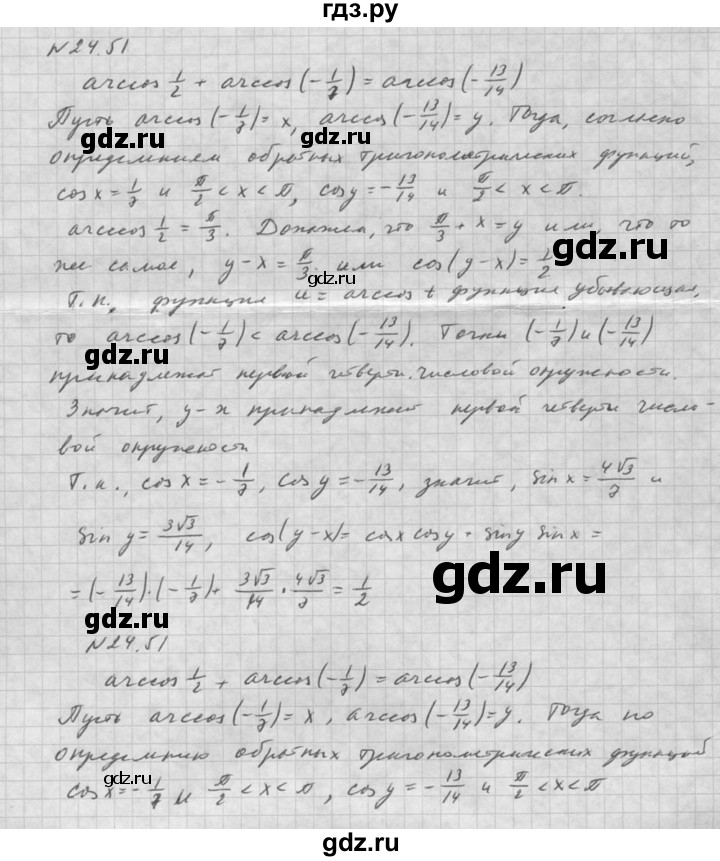 гдз.ру
№24.51
arccos 1/2 + arccos(-1/7) = arccos(-13/14)
Пусть arccos(-1/7)=x, arccos(-13/14)=y. Тогда, согласно
gdz.ru
определением обратных тригонометрических функций,
cos x = 1/7 и π/2 < x < π, cos y = -13/14 и π/2 < x < π.
arccos 1/2 = π/3. Докажем, что π/3 + x = y или, что то
gdz.ru
же самое, y-x = π/3 или cos(y-x) = 1/2
Т.к. функция u = arccos t функция убывающая,
gdz.ru
то arccos(-1/7) < arccos(-13/14). Точки (-1/7) и (-13/14)
gdz.ru
принадлежат первой четверти числовой окружности.
Значит, y-x принадлежит первой четверти число-
вой окружности
Т.к., cos x = -1/7, cos y = -13/14, значит, sin x = 4√3/7 и
sin y = 3√3/14, cos(y-x) = cos x cos y + sin y sin x =
gdz.ru
= (-13/14)·(-1/7) + 3√3/14 · 4√3/7 = 1/2
gdz.ru
№24.51
arccos 1/2 + arccos(-1/7) = arccos(-13/14)
Пусть arccos(-1/7)=x, arccos(-13/14)=y. Тогда по
gdz.ru
определению обратных тригонометрических функций
gdz.ru
cos x = -1/7 и π/2 < x < π, cos y = -13/14 и π/2 < x < π
gdz.ru